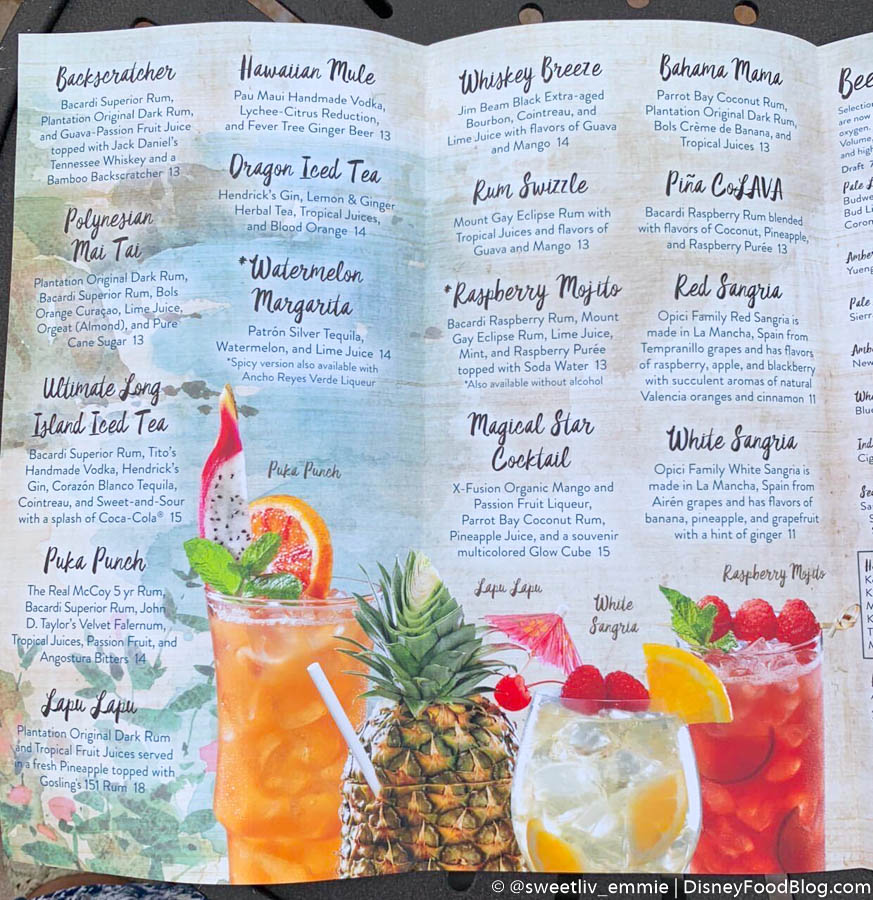 Backscratcher
Bacardi Superior Rum,
Plantation Original Dark Rum,
and Guava-Passion Fruit Juice
topped with Jack Daniel's
Tennessee Whiskey and a
Bamboo Backscratcher 13
Polynesian
Mai Tai
Plantation Original Dark Rum,
Bacardi Superior Rum, Bols
Orange Curaçao, Lime Juice,
Orgeat (Almond), and Pure
Cane Sugar 13
Ultimate Long
Island Iced Tea
Bacardi Superior Rum, Tito's
Handmade Vodka, Hendrick's
Gin, Corazón Blanco Tequila,
Cointreau, and Sweet-and-Sour
with a splash of Coca-Cola® 15
Puka Punch
The Real McCoy 5 yr Rum,
Bacardi Superior Rum, John
D. Taylor's Velvet Falernum,
Tropical Juices, Passion Fruit, and
Angostura Bitters 14
Lapu Lapu
Plantation Original Dark Rum
and Tropical Fruit Juices served
in a fresh Pineapple topped with
Gosling's 151 Rum 18
Hawaiian Mule
Pau Maui Handmade Vodka,
Lychee-Citrus Reduction,
and Fever Tree Ginger Beer 13
Dragon Iced Tea
Hendrick's Gin, Lemon & Ginger
Herbal Tea, Tropical Juices,
and Blood Orange 14
*Watermelon
Margarita
Patrón Silver Tequila,
Watermelon, and Lime Juice 14
*Spicy version also available with
Ancho Reyes Verde Liqueur
Puka Punch
Whiskey Breeze
Jim Beam Black Extra-aged
Bourbon, Cointreau, and
Lime Juice with flavors of Guava
and Mango 14
Rum Swizzle
Mount Gay Eclipse Rum with
Tropical Juices and flavors of
Guava and Mango 13
*Raspberry Mojito
Bacardi Raspberry Rum, Mount
Gay Eclipse Rum, Lime Juice,
Mint, and Raspberry Purée
topped with Soda Water 13
*Also available without alcohol
Magical Star
Cocktail
X-Fusion Organic Mango and
Passion Fruit Liqueur,
Parrot Bay Coconut Rum,
Pineapple Juice, and a souvenir
multicolored Glow Cube 15
Lapu Lapu
White
Sangria
Bahama Mama
Parrot Bay Coconut Rum,
Plantation Original Dark Rum,
Bols Crème de Banana, and
Tropical Juices 13
Piña CoLAVA
Bacardi Raspberry Rum blended
with flavors of Coconut, Pineapple,
and Raspberry Purée 13
Red Sangria
Opici Family Red Sangria is
made in La Mancha, Spain from
Tempranillo grapes and has flavors
of raspberry, apple, and blackberry
with succulent aromas of natural
Valencia oranges and cinnamon 11
White Sangria
Opici Family White Sangria is
made in La Mancha, Spain from
Airén grapes and has flavors of
banana, pineapple, and grapefruit
with a hint of ginger 11
Raspberry Mojito
Selection
are now
oxygen.
Volume,
and high
Draft 7
Pale L
Budwe
Bud Li
Coron
Ambe
Yueng
Pale
Sierr
Ambe
New
Blue
Cig
© @sweetliv_emmie | DisneyFoodBlog.com